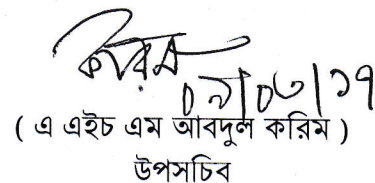 করিম
০৯/০৩/১৭
( এ এইচ এম আবদুল করিম )
উপসচিব